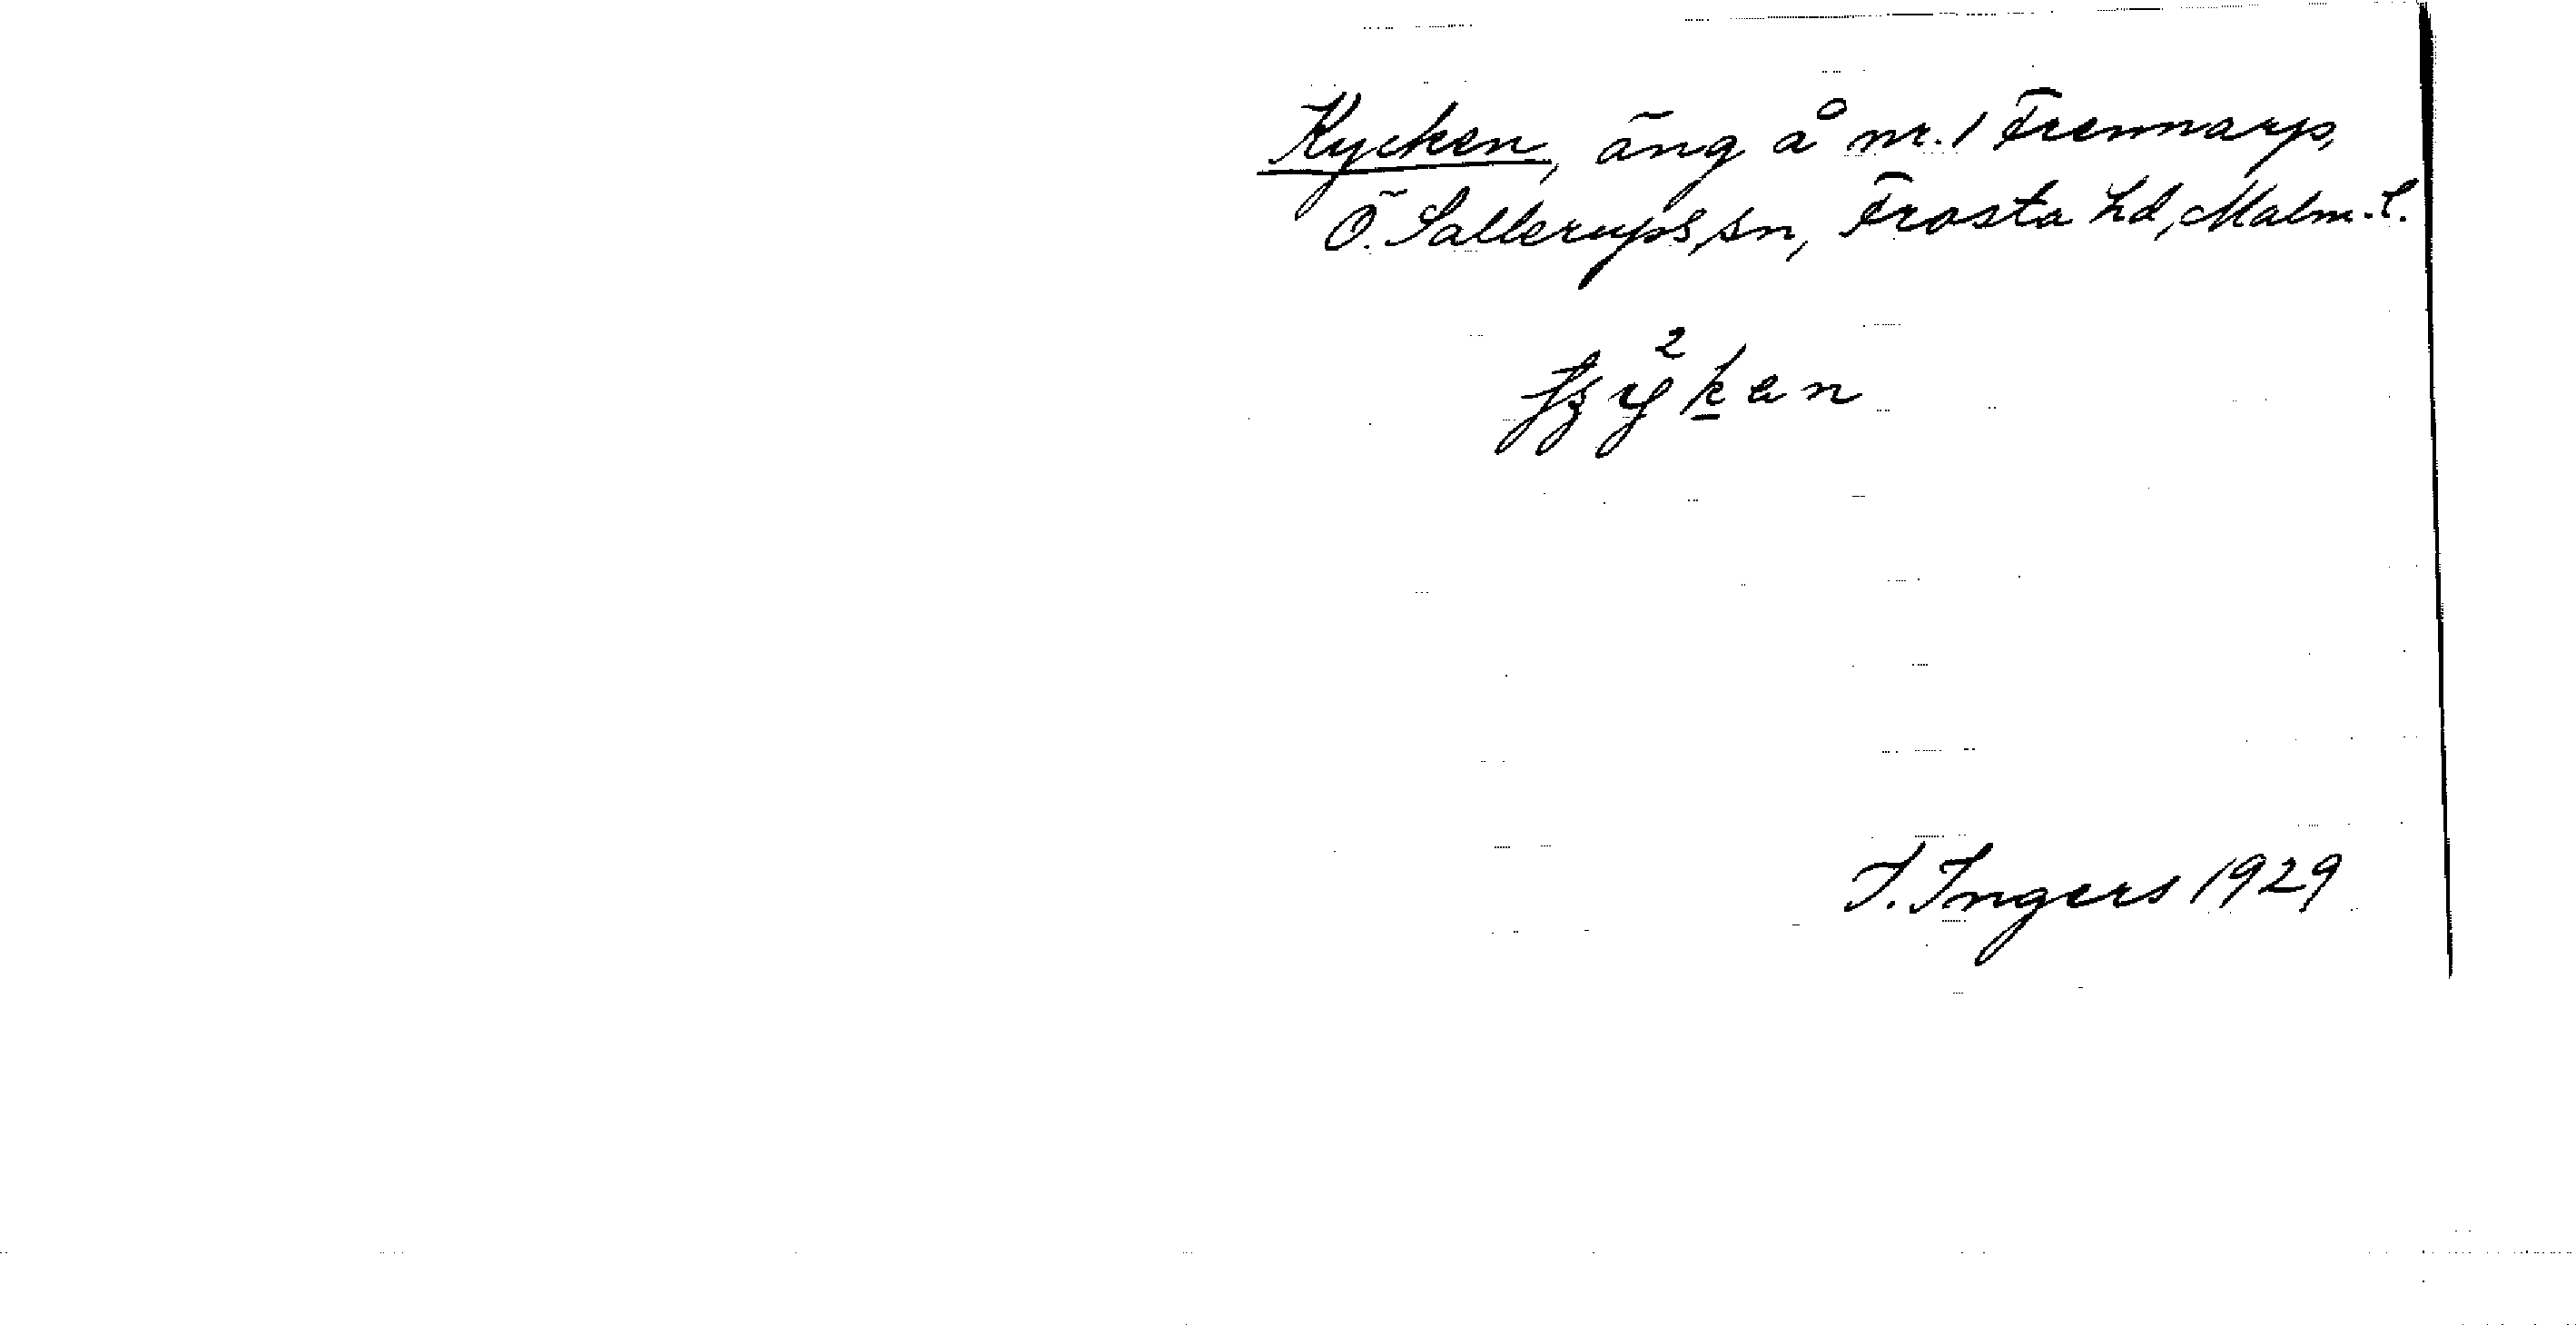 Kycken, äng å nr. 1 Frennarp,
Ö. Sallerups sn, Frosta hd, Malm. l.
I. Ingers 1929